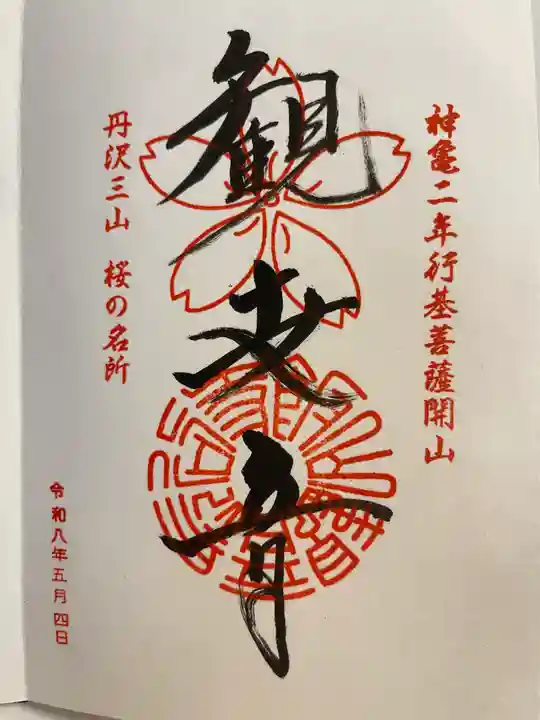 神亀二年行基菩薩開山
観世音
丹沢三山 桜の名所
令和八年五月四日